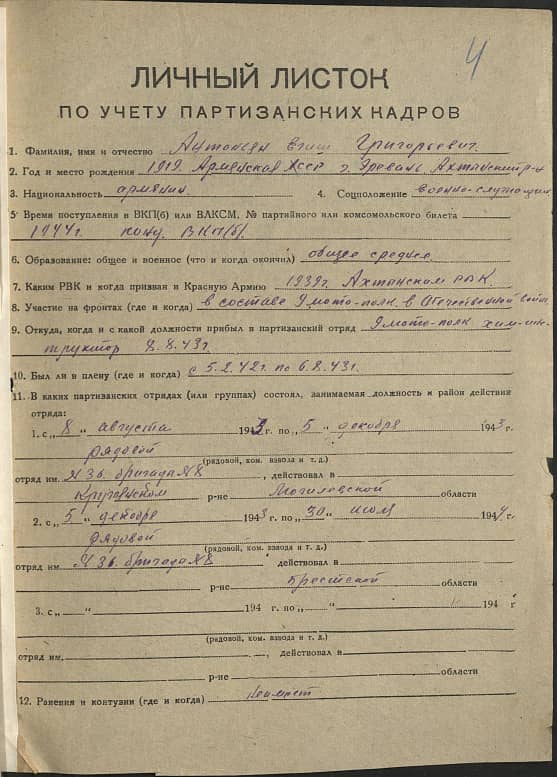 4
ЛИЧНЫЙ ЛИСТОК
ПО УЧЕТУ ПАРТИЗАНСКИХ КАДРОВ
1. Фамилия, имя и отчество Григорьевич.
2. Год и место рождения 1919. Армянская ССР г. Эревань
3. Национальность армянин. 4. Соцположение военно-служащий
5. Время поступления в ВКП(б) или ВЛКСМ, № партийного или комсомольского билета
1944г. канд. ВКП(б).
6. Образование: общее и военное (что и когда окончил) общее среднее.
7. Каким РВК и когда призван в Красную Армию 1939г. Ахтанском РВК.
8. Участие на фронтах (где и когда) в составе 9 мото-полк. в Отечественной войн
9. Откуда, когда и с какой должности прибыл в партизанский отряд 9 мото-полк хим-инс
труктор 8.8.43г.
10. Был ли в плену (где и когда) с 5.2.42г. по 6.8.43г.
11. В каких партизанских отрядах (или группах) состоял, занимаемая должность и район действия
отряда:
1. с „ 8 " августа 1943 г. по „ 5 " декабря 1943 г.
рядовой
(рядовой, ком. взвода и т. д.)
отряд им. № 36. бригада № 8 , действовал в
Круглянском р-не Могилевской области
2. с „ 5 " декабря 1943 г. по „ 30 " июля 1944 г.
рядовой
(рядовой, ком. взвода и т. д.)
отряд им. № 36. бригада № 8 действовал в
р-не Брестской области
3. с „ " 194 г. по „ " 194 г
(рядовой, ком. взвода и т. д.)
отряд им. , действовал в
р-не области
12. Ранения и контузии (где и когда) Неимеет